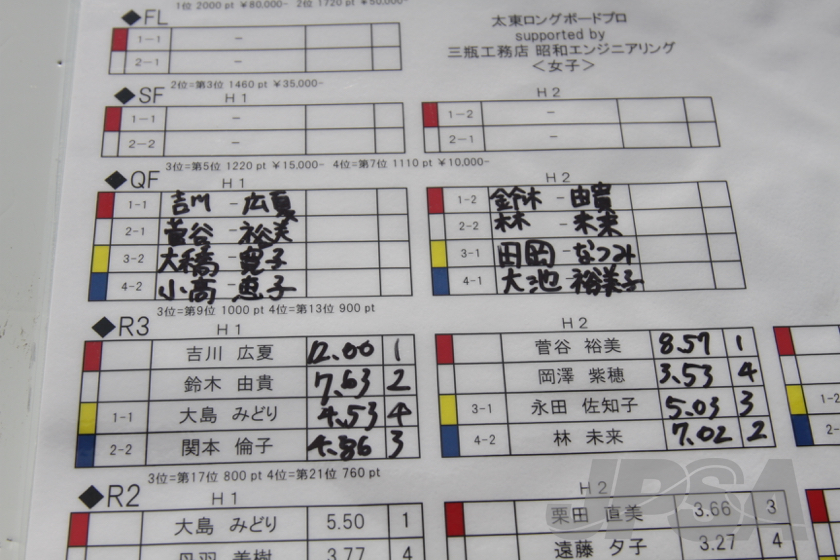 1位 2000 pt ¥80,000- 2位 1720 pt ¥50,000-
◆FL
1-1 -
2-1 -
太東ロングボードプロ
supported by
三瓶工務店 昭和エンジニアリング
<女子>
2位=第3位 1460 pt ¥35,000-
◆SF
H1
1-1 -
2-2 -
H2
1-2 -
2-1 -
3位=第5位 1220 pt ¥15,000- 4位=第7位 1110 pt ¥10,000-
◆QF
H1
1-1 吉川 - 広夏
2-1 菅谷 - 裕美
3-2 大橋 - 寛子
4-2 小高 恵子
H2
1-2 鈴木 - 由貴
2-2 林 - 未来
3-1 田岡 - なつみ
4-1 大池 裕美子
3位=第9位 1000 pt 4位=第13位 900 pt
◆R3
H1
吉川 広夏 12.00 1
鈴木 由貴 7.63 2
1-1 大島 みどり 4.53 4
2-2 関本 倫子 4.86 3
H2
菅谷 裕美 8.57 1
岡澤 紫穂 3.53 4
3-1 永田 佐知子 5.03 3
4-2 林 未来 7.02 2
1-2
2-
3位=第17位 800 pt 4位=第21位 760 pt
◆R2
H1
大島 みどり 5.50 1
丹羽 美樹 3.77 4
H2
栗田 直美 3.66 3
遠藤 夕子 3.27 4
JPSA